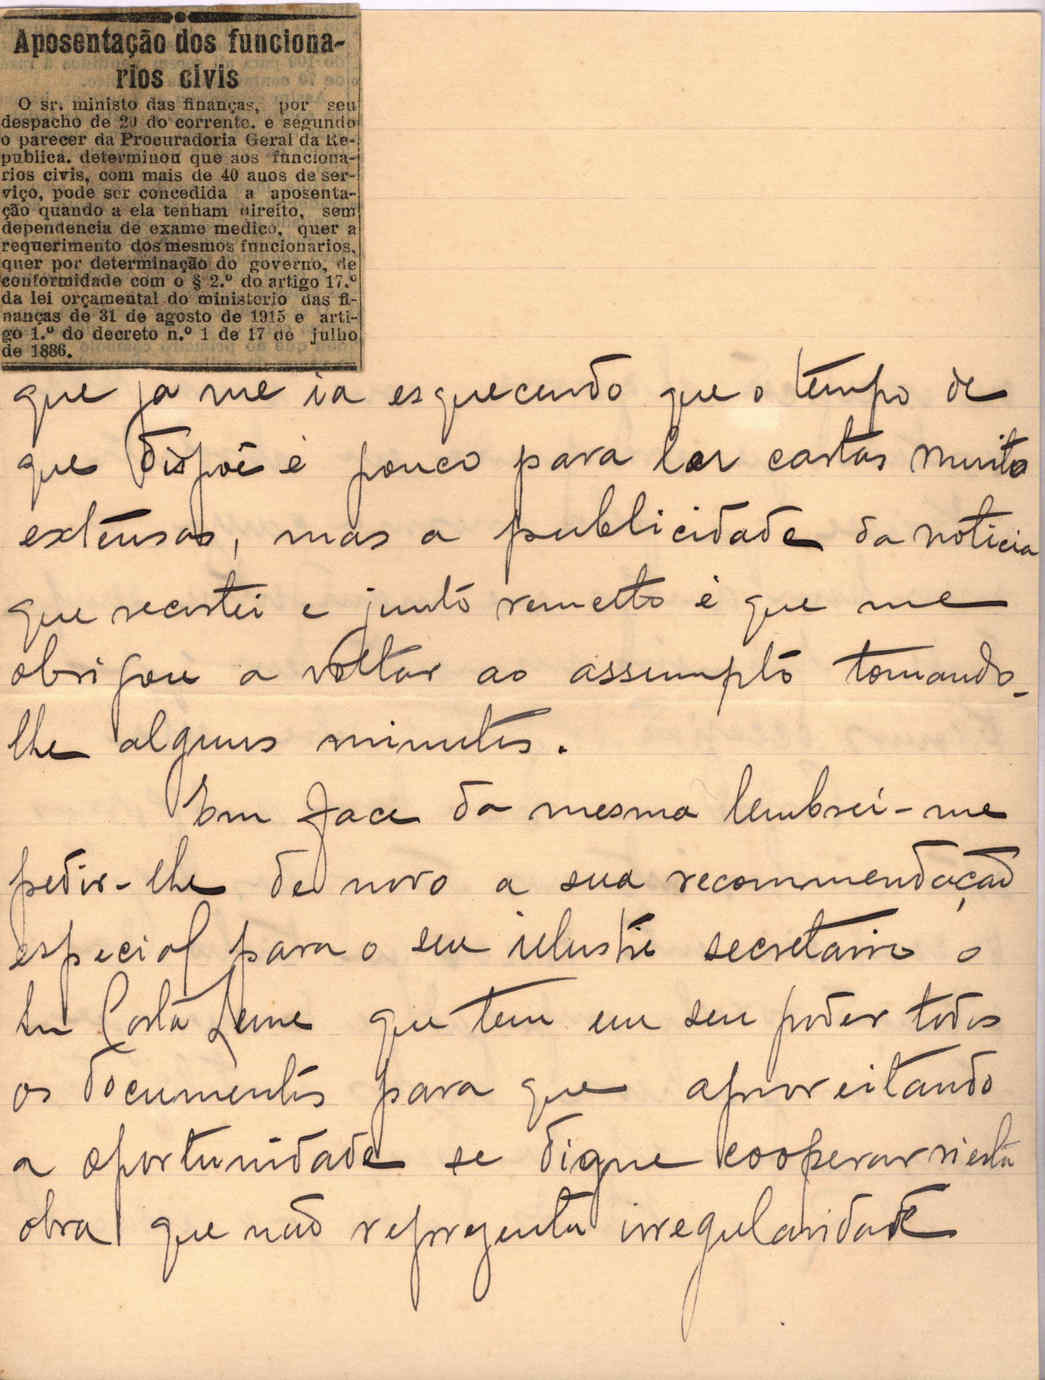 Aposentação dos funciona-
rios civis
O sr. ministo das finanças, por seu
despacho de 20 do corrente, e segundo
o parecer da Procuradoria Geral da Re-
publica, determinou que aos funciona-
rios civis, com mais de 40 anos de ser-
viço, pode ser concedida a aposenta-
ção quando a ela tenham direito, sem
dependencia de exame medico, quer a
requerimento dos mesmos funcionarios,
quer por determinação do governo, de
conformidade com o § 2.º do artigo 17.º
da lei orçamental do ministerio das fi-
nanças de 31 de agosto de 1915 e arti-
go 1.º do decreto n.º 1 de 17 de julho
de 1886.
que ja me ia esquecendo que o tempo de
que dispõe é pouco para ler cartas muito
extensas, mas a publicidade da noticia
que recortei e junto remetto é que me
obrigou a voltar ao assumpto tomando-
lhe alguns minutos.
Em face da mesma lembrei-me
pedir-lhe de novo a sua recommendação
especial para o seu ilustre secretario o
Snr Costa Leme que tem em seu poder todos
os documentos para que aproveitando
a oportunidade se digne cooperar n'esta
obra que não reprezenta irregularidade